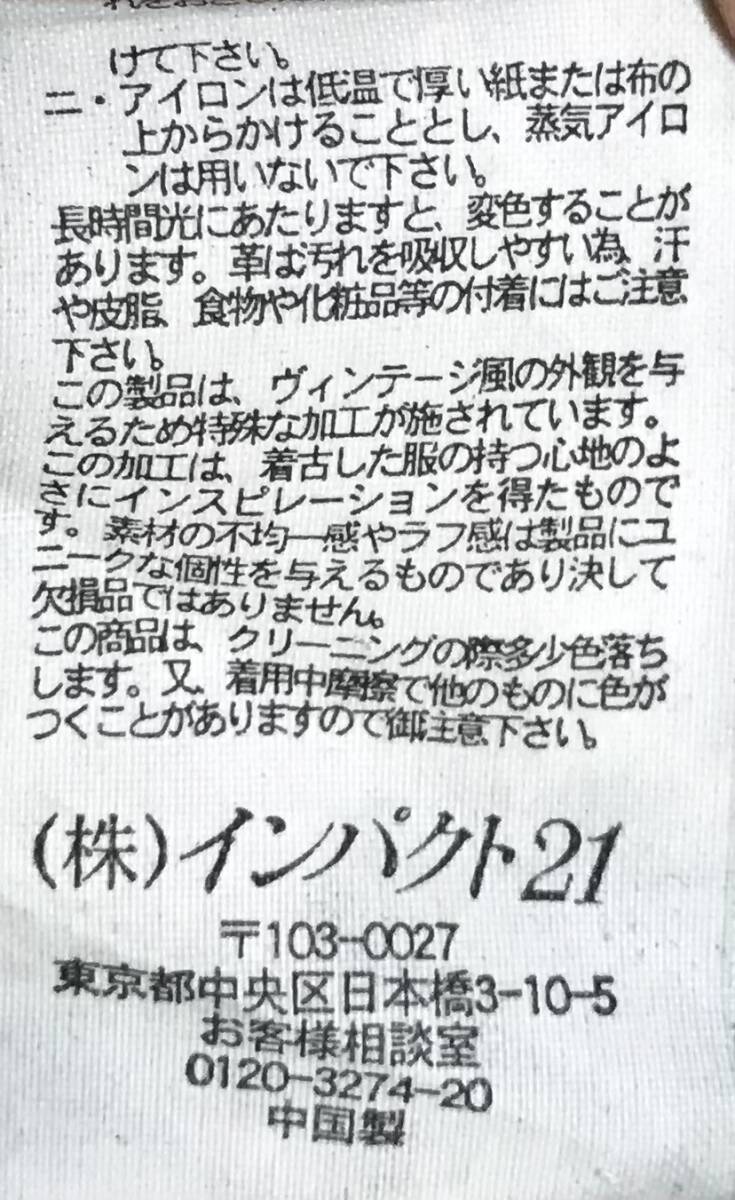 けて下さい。
二・アイロンは低温で厚い紙または布の
上からかけることとし、蒸気アイロ
ンは用いないで下さい。
長時間光にあたりますと、変色することが
あります。革は汚れを吸収しやすい為、汗
や皮脂、食物や化粧品等の付着にはご注意
下さい。
この製品は、ヴィンテージ風の外観を与
えるため特殊な加工が施されています。
この加工は、着古した服の持つ心地のよ
さにインスピレーションを得たもので
す。素材の不均一感やラフ感は製品にユ
ニークな個性を与えるものであり決して
欠損品ではありません。
この商品は、クリーニングの際多少色落ち
します。又、着用中摩擦で他のものに色が
つくことがありますので御注意下さい。
(株)インパクト21
〒103-0027
東京都中央区日本橋3-10-5
お客様相談室
0120-3274-20
中国製